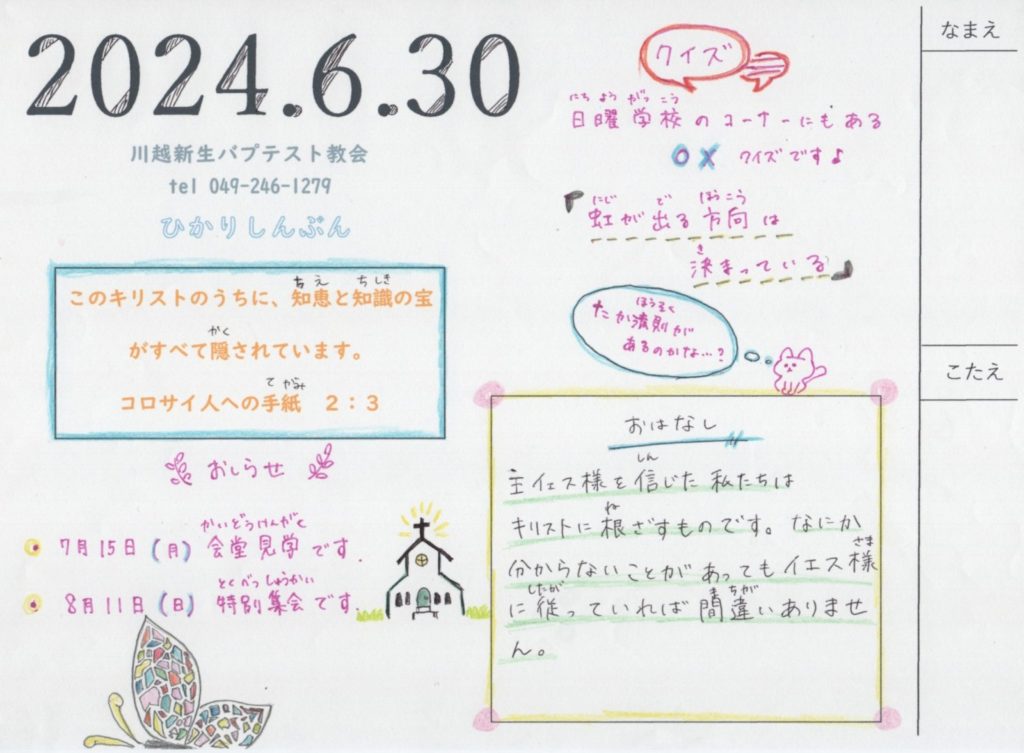 2024.6.30
川越新生バプテスト教会
tel 049-246-1279
ひかりしんぶん
ちえ ちしき
このキリストのうちに、知恵と知識の宝
かく
がすべて隠されています。
てがみ
コロサイ人への手紙 2:3
おしらせ
かいどうけんがく
7月15日(月)会堂見学です.
8月11日(日)特別集会です.
クイズ
にちようがっこう
日曜学校のコーナーにもある
○×クイズです♪
にじ で ほうこう
『虹が出る方向は
き
決まっている』
ほうそく
たか潰則が
あるのかな…?
おはなし
しん
主イエス様を信じた私たちは
ね
キリストに根ざすものです。なにか
さま
分からないことがあってもイエス様
したが まちが
に従っていれば間違いありませ
ん。
なまえ
こたえ